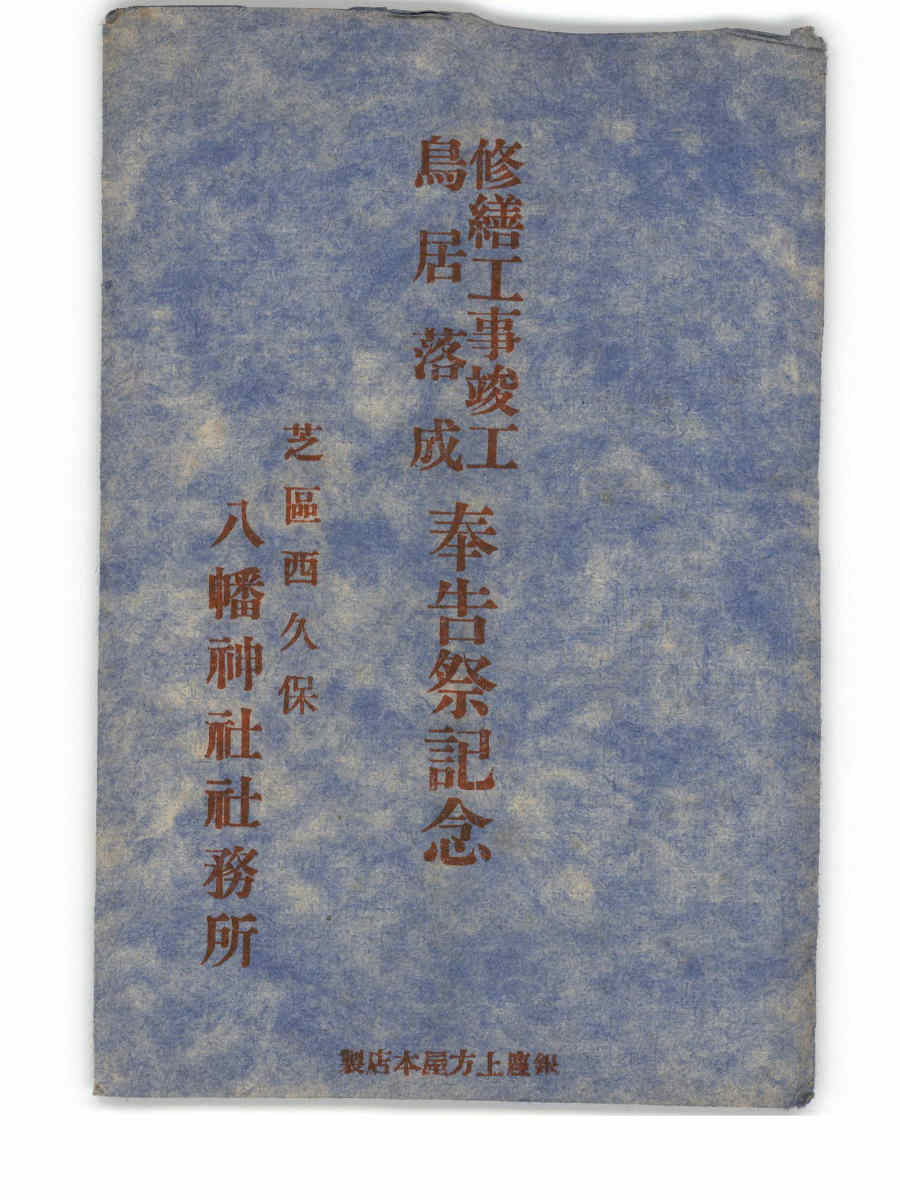 修繕工事竣工
鳥居落成
奉告祭記念
芝區西久保
八幡神社社務所
銀座上方屋本店製